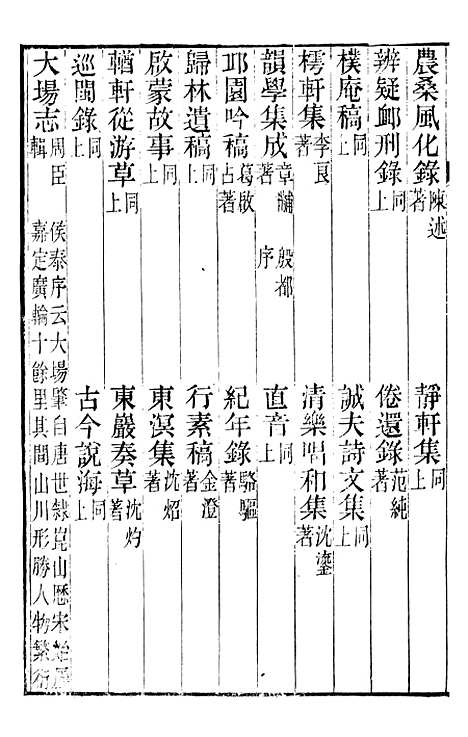 農桑風化錄 陳述著 靜軒集 同上
辨疑卹刑錄 同上 倦還錄 范純著
樸庵稿 同上 誠夫詩文集 同上
樗軒集 李良著 清樂唱和集 沈鎏著
韻學集成 章黼著 殷都序 直音 同上
邛園吟稿 葛啟占著 紀年錄 駱驅著
歸林遺稿 同上 行素稿 金澄著
啟蒙故事 同上 東溟集 沈炤著
輶軒從游草 同上 東巖奏草 沈灼著
巡閩錄 同上 古今說海 同上
大場志 周臣輯 侯泰序云大場肇自唐世隸崑山歷宋始屬嘉定廣輪十餘里其間山川形勝人物繁衍